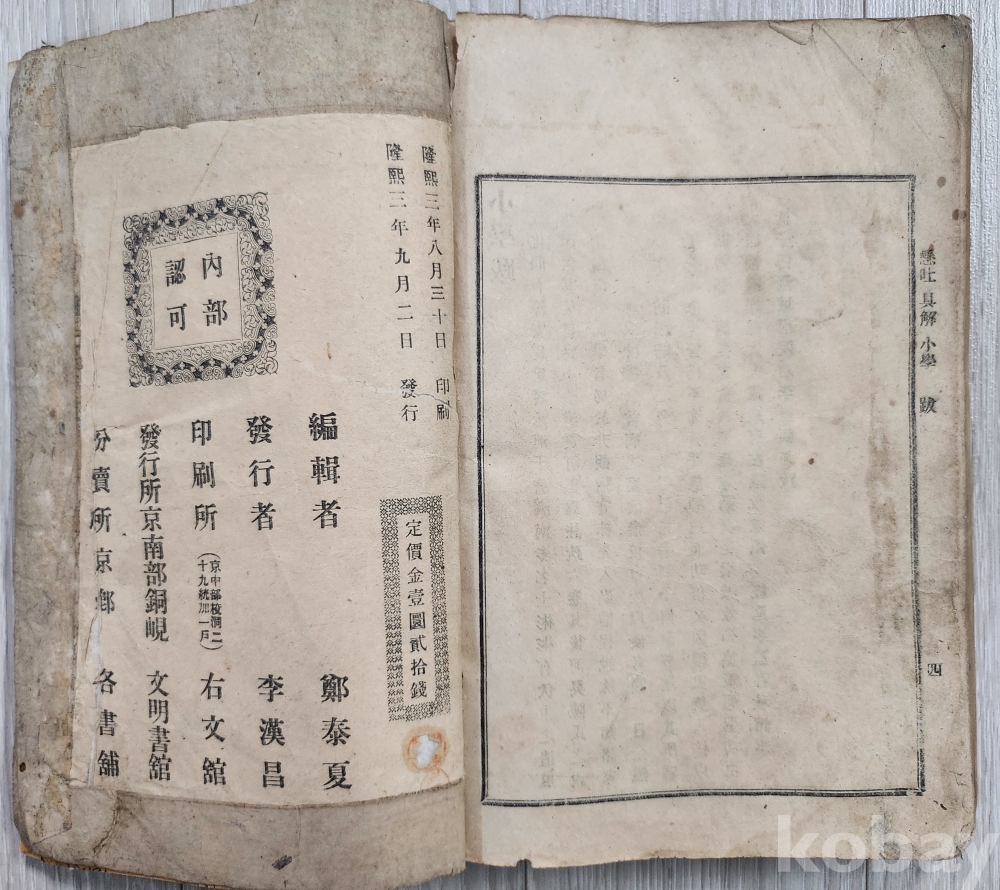 懸吐 具解 小學 跋
四
隆熙三年八月三十日 印刷
隆熙三年九月二日 發行
定價金壹圜貳拾錢
內部
認可
編輯者 鄭泰夏
發行者 李漢昌
印刷所 (京中部校洞二十九統加一戶) 右文舘
發行所京南部銅峴 文明書舘
分賣所京鄕 各書舖
kobay